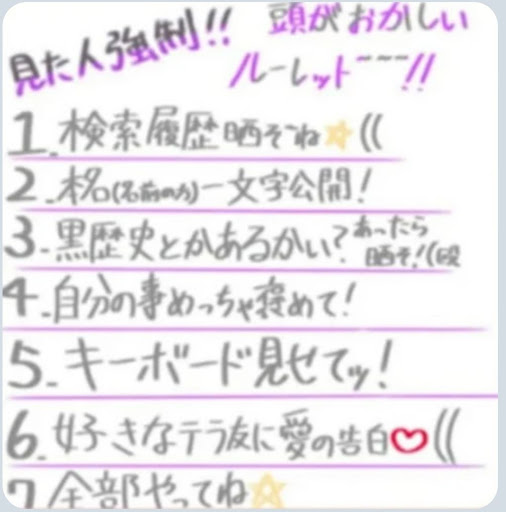 見た人強制!! 頭がおかしい
ルーレット~~~!!
1.検索履歴晒そうね☆((
2.本名(名前の方)一文字公開!
3.黒歴史とかあるかい?あったら
晒そ!(殴
4.自分の事めっちゃ褒めて!
5.キーボード見せてッ!
6.好きなテラ友に愛の告白♡((
7 全部やってね☆